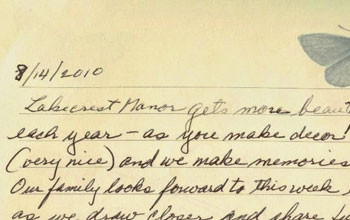 8/14/2010
Lakecrest Manor gets more beaut
each year - as you make decor
(very nice) and we make memories
Our family looks forward to this week
as we draw closer and share